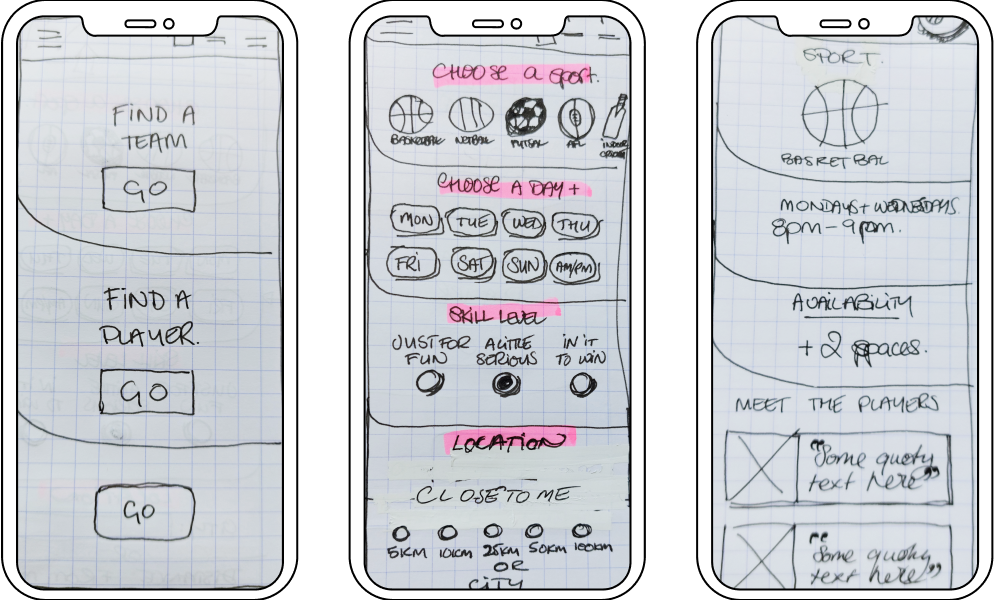 FIND A
TEAM
GO
FIND A
PLAYER.
GO
GO
CHOOSE a sport.
BASKETBALL NETBALL FUTSAL AFL INDOOR
CRICKET
CHOOSE A DAY +
MON TUE WED THU
FRI SAT SUN AM/PM
SKILL LEVEL
JUST FOR A LITTLE IN IT
FUN SERIOUS TO WIN
LOCATION
CLOSE TO ME
5KM 10KM 25KM 50KM 100KM
OR
CITY
SPORT.
BASKETBAL
MONDAYS + WEDNESDAYS.
8pm - 9pm.
AVAILABILITY
+ 2 spaces.
MEET THE PLAYERS
"Some quoty
text here"
"Some quoty
text here"